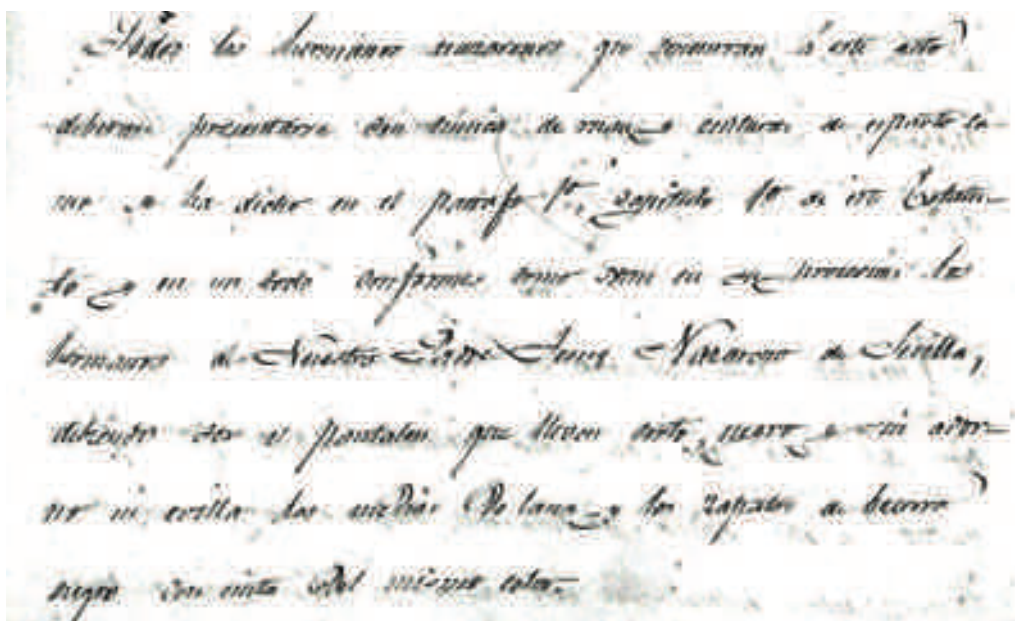 Todos los hermanos nazarenos que concurran á este acto
deberan presentarse con tunica de            y cintura de esparto co-
mo se ha dicho en el parrafo 1º, capitulo 1º de este Estatu-
to y en un todo conformes como van en su procesion los
hermanos de Nuestro Padre Jesus Nazareno de Sevilla,
debiendo ser el pantalon que lleven corto, negro y sin ador-
no ni evilla las medias de lana y los zapatos de becerro
negro con cinta del mismo color.